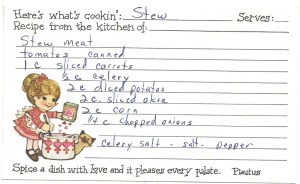 Here's what's cookin': Stew Serves:
Recipe from the kitchen of:
Stew meat
tomatoes canned
1 c sliced carrots
1/2 c celery
2 c diced potatoes
2 c. sliced okra
2 c corn
1/4 c chopped onions
Celery salt - salt - pepper
Spice a dish with love and it pleases every palate. Plautus